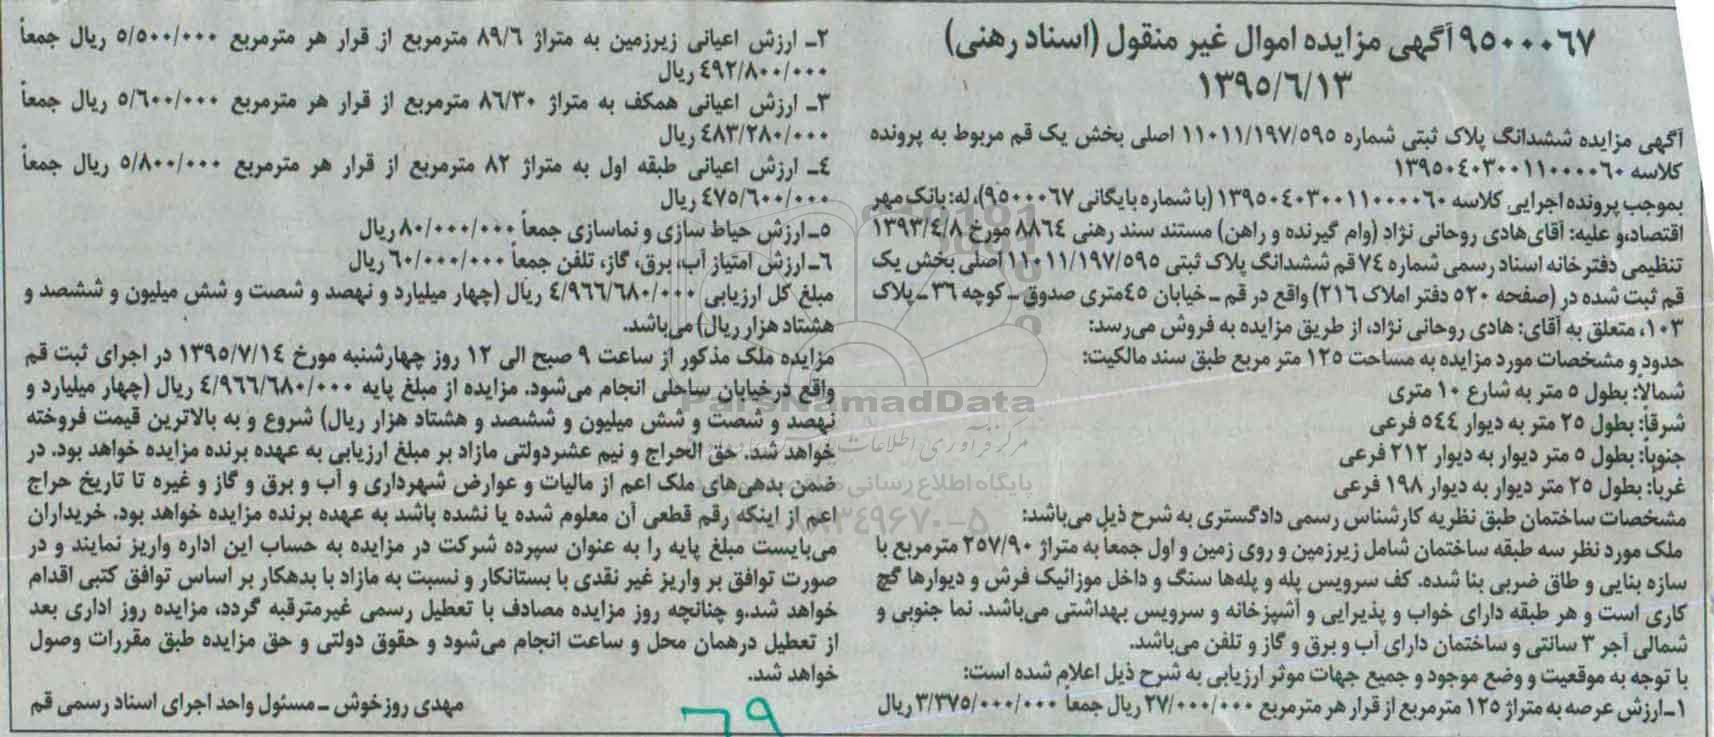 ۹۵۰۰۰۶۷ آگهی مزایده اموال غیر منقول (اسناد رهنی)
۱۳۹۵/۶/۱۳
آگهی مزایده ششدانگ پلاک ثبتی شماره ۱۱۰۱۱/۱۹۷/۵۹۵ اصلی بخش یک قم مربوط به پرونده
کلاسه ۱۳۹۵۰۴۰۳۰۰۱۱۰۰۰۰۶۰
بموجب پرونده اجرایی کلاسه ۱۳۹۵۰۴۰۳۰۰۱۱۰۰۰۰۶۰ (با شماره بایگانی ۹۵۰۰۰۶۷)، له: بانک مهر
اقتصاد،و علیه: آقای هادی روحانی نژاد (وام گیرنده و راهن) مستند سند رهنی ۸۸۶۴ مورخ ۱۳۹۳/۴/۸
تنظیمی دفترخانه اسناد رسمی شماره ۷۴ قم ششدانگ پلاک ثبتی ۱۱۰۱۱/۱۹۷/۵۹۵ اصلی بخش یک
قم ثبت شده در (صفحه ۵۲۰ دفتر املاک ۲۱۶) واقع در قم ـ خیابان ۴۵متری صدوق ـ کوچه ۳۶ ـ پلاک
۱۰۳، متعلق به آقای: هادی روحانی نژاد، از طریق مزایده به فروش می‌رسد:
حدود و مشخصات مورد مزایده به مساحت ۱۲۵ متر مربع طبق سند مالکیت:
شمالاً: بطول ۵ متر به شارع ۱۰ متری
شرقاً: بطول ۲۵ متر به دیوار ۵۴۴ فرعی
جنوباً: بطول ۵ متر دیوار به دیوار ۲۱۲ فرعی
غرباً: بطول ۲۵ متر دیوار به دیوار ۱۹۸ فرعی
مشخصات ساختمان طبق نظریه کارشناس رسمی دادگستری به شرح ذیل می‌باشد:
ملک مورد نظر سه طبقه ساختمان شامل زیرزمین و روی زمین و اول جمعاً به متراژ ۲۵۷/۹۰ مترمربع با
سازه بنایی و طاق ضربی بنا شده. کف سرویس پله و پله‌ها سنگ و داخل موزائیک فرش و دیوارها گچ
کاری است و هر طبقه دارای خواب و پذیرایی و آشپزخانه و سرویس بهداشتی می‌باشد. نما جنوبی و
شمالی آجر ۳ سانتی و ساختمان دارای آب و برق و گاز و تلفن می‌باشد.
با توجه به موقعیت و وضع موجود و جمیع جهات موثر ارزیابی به شرح ذیل اعلام شده است:
۱ـ ارزش عرصه به متراژ ۱۲۵ مترمربع از قرار هر مترمربع ۲۷/۰۰۰/۰۰۰ ریال جمعاً ۳/۳۷۵/۰۰۰/۰۰۰ ریال
۲ـ ارزش اعیانی زیرزمین به متراژ ۸۹/۶ مترمربع از قرار هر مترمربع ۵/۵۰۰/۰۰۰ ریال جمعاً
۴۹۲/۸۰۰/۰۰۰ ریال
۳ـ ارزش اعیانی همکف به متراژ ۸۶/۳۰ مترمربع از قرار هر مترمربع ۵/۶۰۰/۰۰۰ ریال جمعاً
۴۸۳/۲۸۰/۰۰۰ ریال
۴ـ ارزش اعیانی طبقه اول به متراژ ۸۲ مترمربع از قرار هر مترمربع ۵/۸۰۰/۰۰۰ ریال جمعاً
۴۷۵/۶۰۰/۰۰۰ ریال
۵ـ ارزش حیاط سازی و نماسازی جمعاً ۸۰/۰۰۰/۰۰۰ ریال
۶ـ ارزش امتیاز آب، برق، گاز، تلفن جمعاً ۶۰/۰۰۰/۰۰۰ ریال
مبلغ کل ارزیابی ۴/۹۶۶/۶۸۰/۰۰۰ ریال (چهار میلیارد و نهصد و شصت و شش میلیون و ششصد و
هشتاد هزار ریال) می‌باشد.
مزایده ملک مذکور از ساعت ۹ صبح الی ۱۲ روز چهارشنبه مورخ ۱۳۹۵/۷/۱۴ در اجرای ثبت قم
واقع درخیابان ساحلی انجام می‌شود. مزایده از مبلغ پایه ۴/۹۶۶/۶۸۰/۰۰۰ ریال (چهار میلیارد و
نهصد و شصت و شش میلیون و ششصد و هشتاد هزار ریال) شروع و به بالاترین قیمت فروخته
خواهد شد. حق الحراج و نیم عشردولتی مازاد بر مبلغ ارزیابی به عهده برنده مزایده خواهد بود. در
ضمن بدهی‌های ملک اعم از مالیات و عوارض شهرداری و آب و برق و گاز و غیره تا تاریخ حراج
اعم از اینکه رقم قطعی آن معلوم شده یا نشده باشد به عهده برنده مزایده خواهد بود. خریداران
می‌بایست مبلغ پایه را به عنوان سپرده شرکت در مزایده به حساب این اداره واریز نمایند و در
صورت توافق بر واریز غیر نقدی با بستانکار و نسبت به مازاد با بدهکار بر اساس توافق کتبی اقدام
خواهد شد.و چنانچه روز مزایده مصادف با تعطیل رسمی غیرمترقبه گردد، مزایده روز اداری بعد
از تعطیل درهمان محل و ساعت انجام می‌شود و حقوق دولتی و حق مزایده طبق مقررات وصول
خواهد شد.
مهدی روزخوش ـ مسئول واحد اجرای اسناد رسمی قم
۶۹
ParsNamadData